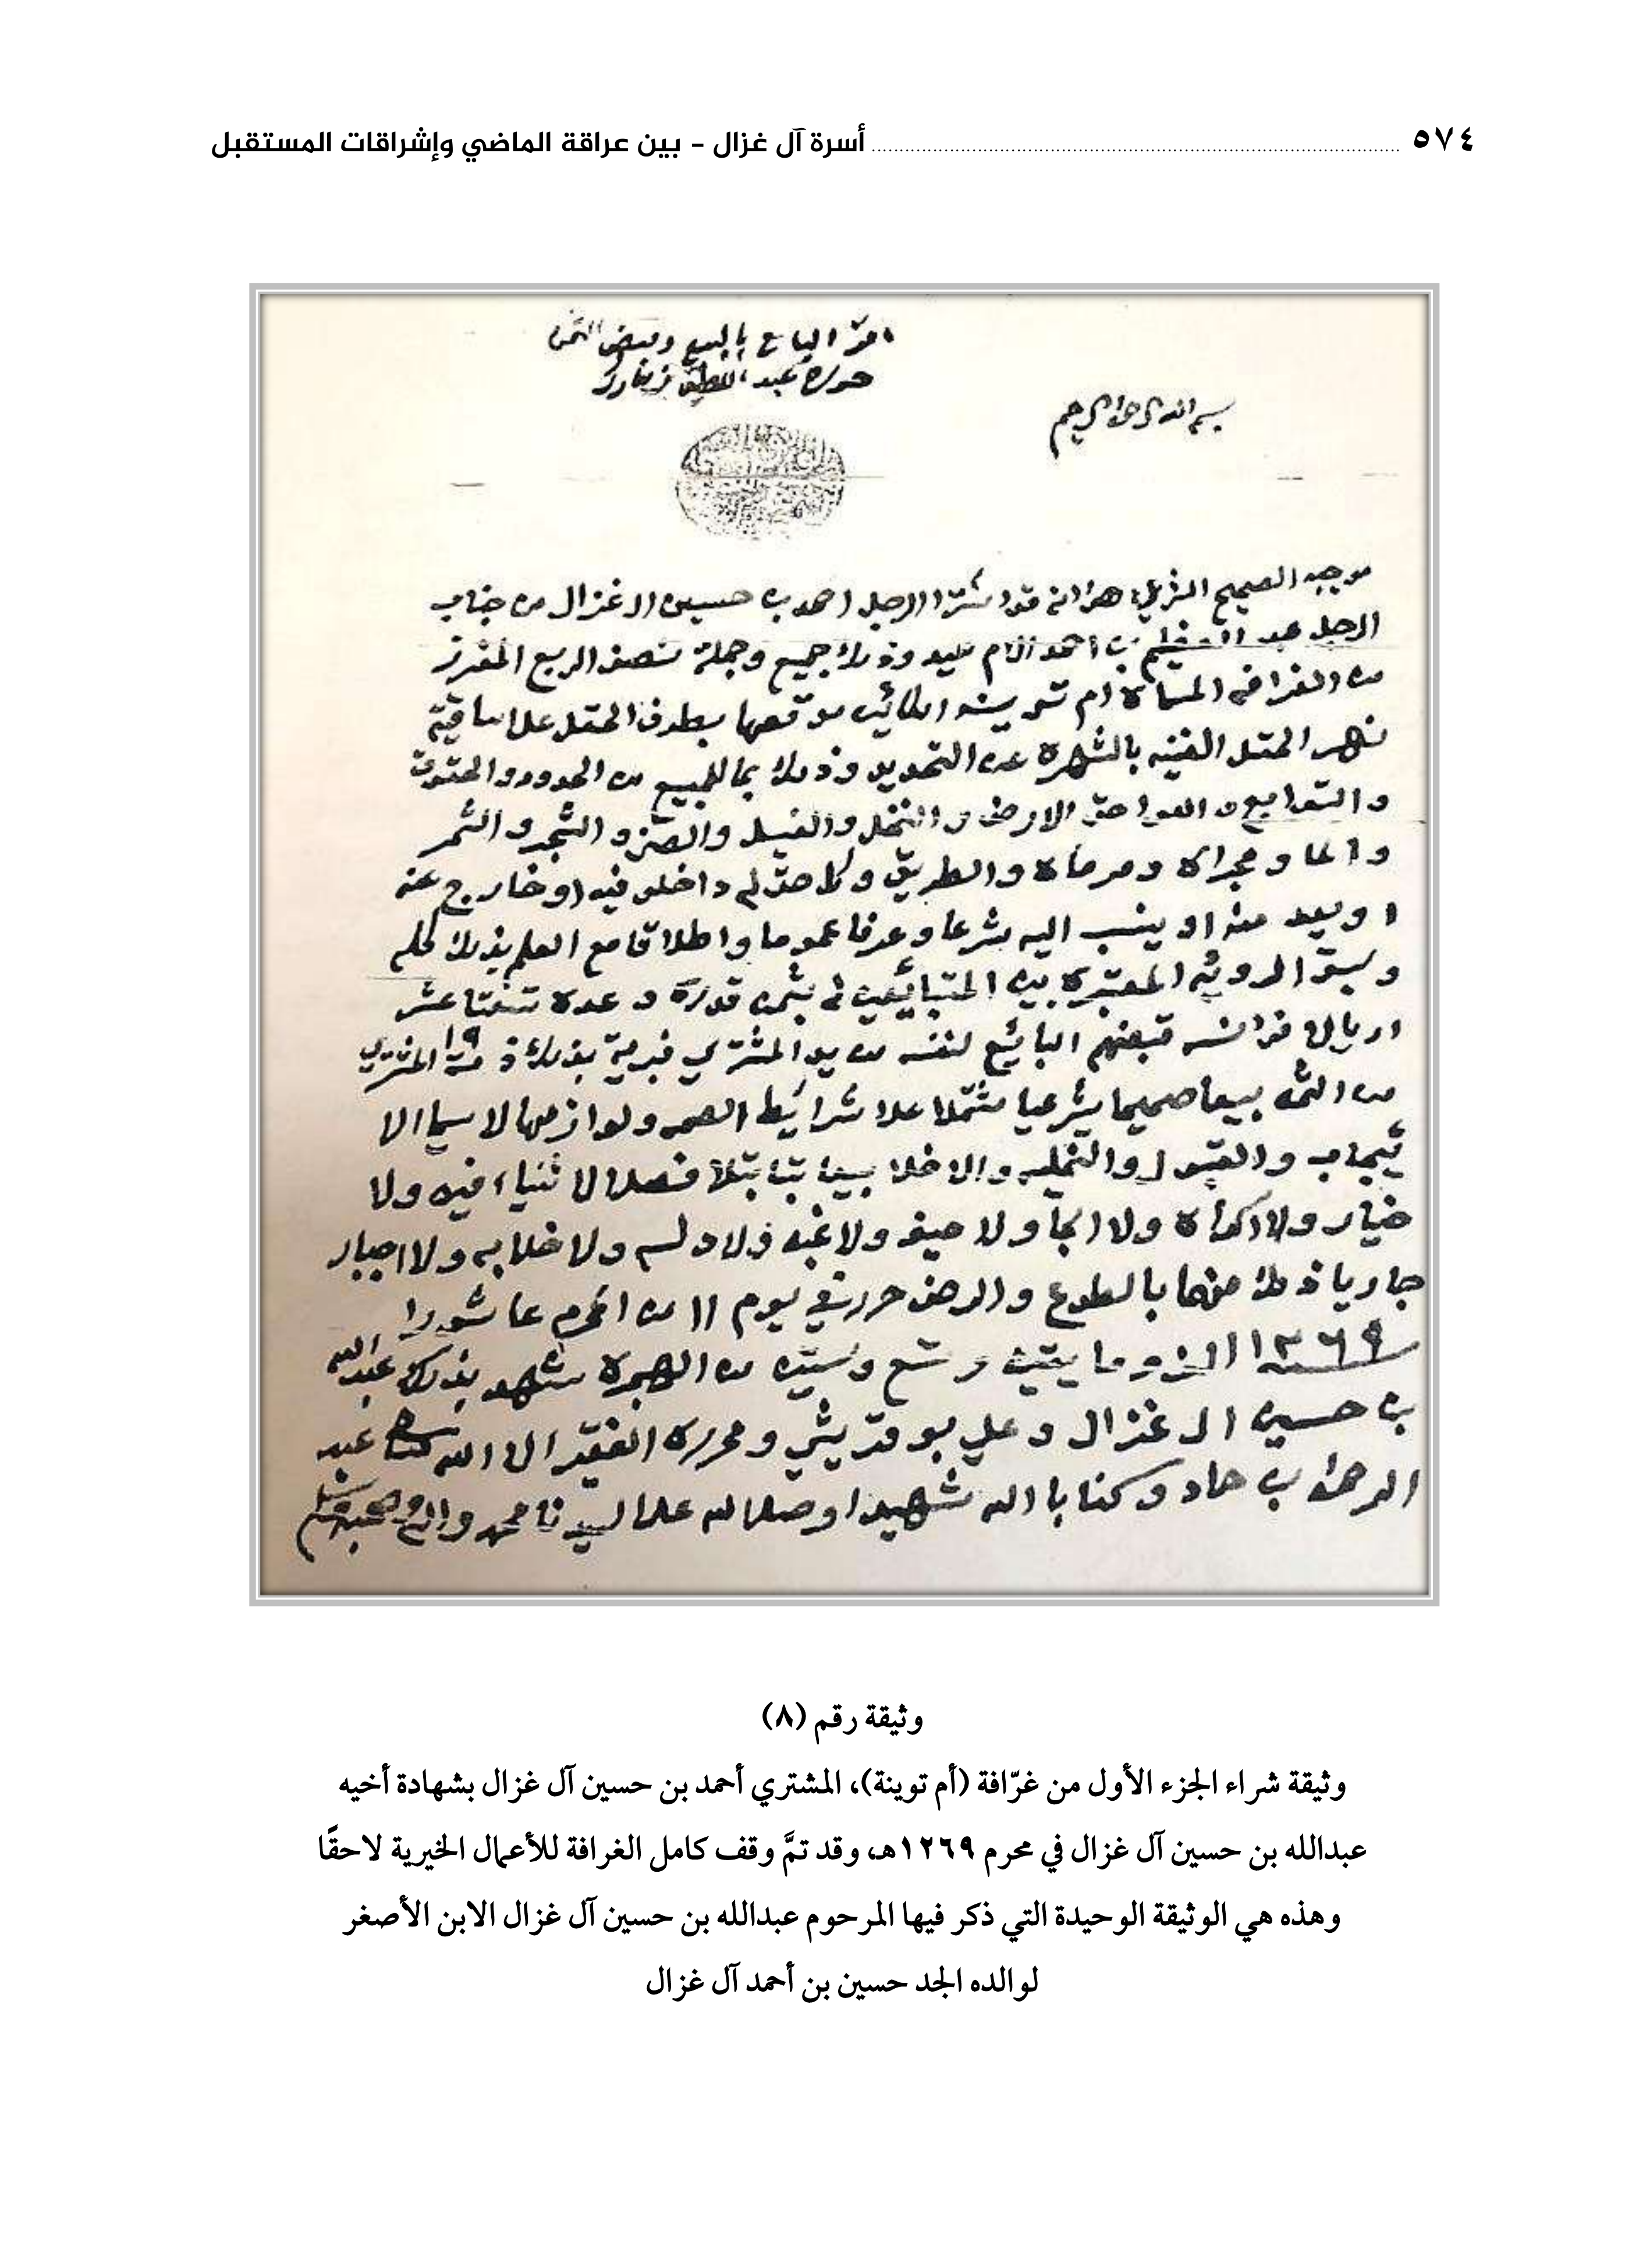 ٥٧٤ أسرة آل غزال - بين عراقة الماضي وإشراقات المستقبل
اقر البايع بالبيع وقبض الثمن
حرره عبد اللطيف
بسم الله الرحمن الرحيم
موجبه الصحيح الشرعي هو انه قد اشترا الرجل احمد بن حسين ال غزال من جناب
الرجل عبد بن احمد وذلك جميع وجملة نصف الربع المفرز
من الغرافه المسماة ام توينه الكائن موقعها بطرف المقل على ساقية
نهر المقل الغنيه بالشهرة عن التحديد وذلك بما للمبيع من الحدود والحقوق
والتوابع و اللواحق الارض و النخل والفسيل والصرم و الشجر و الثمر
و الما و مجراه ومرماه والطريق وكل حق له داخل فيه او خارج عنه
او يعد منه او ينسب اليه شرعا وعرفا عموما واطلاقا مع العلم بذلك كله
وسبق الرويه المعتبرة بين المتبائعين بثمن قدره و عدة تسعتا عشر
اريال فرانسه قبضهم البائع لنفسه من يد المشتري فبرية بذلك ذمة المشتري
١٩
من الثمن بيعا صحيحا شرعيا مشتملا على شرائط الصحه ولوازمها لا سيما الا
ئيجاب والقبول والتخليه والاخلا بيعا بتا بتلا فصلا لا ثنياء فيه ولا
خيار ولا اكراه ولا الجا ولا حيف ولا غبن ولا دلسه ولا خلابه ولا اجبار
جاريا ذلك منهما بالطوع والرضى حرر في يوم ١١ من المحرم عاشورا
سنه ١٢٦٩ الف و مايتين و تسع وستين من الهجرة شهد بذلك عبد الله
بن حسين ال غزال و علي بو قريش ومحرره الفقير الى الله عبد
الرحمن بن حماد وكفا بالله شهيدا وصلى الله على سيدنا محمد واله وصحبه وسلم
وثيقة رقم (٨)
وثيقة شراء الجزء الأول من غرّافة (أم توينة)، المشتري أحمد بن حسين آل غزال بشهادة أخيه
عبدالله بن حسين آل غزال في محرم ١٢٦٩هـ، وقد تمَّ وقف كامل الغرافة للأعمال الخيرية لاحقًا
وهذه هي الوثيقة الوحيدة التي ذكر فيها المرحوم عبدالله بن حسين آل غزال الابن الأصغر
لوالده الجد حسين بن أحمد آل غزال